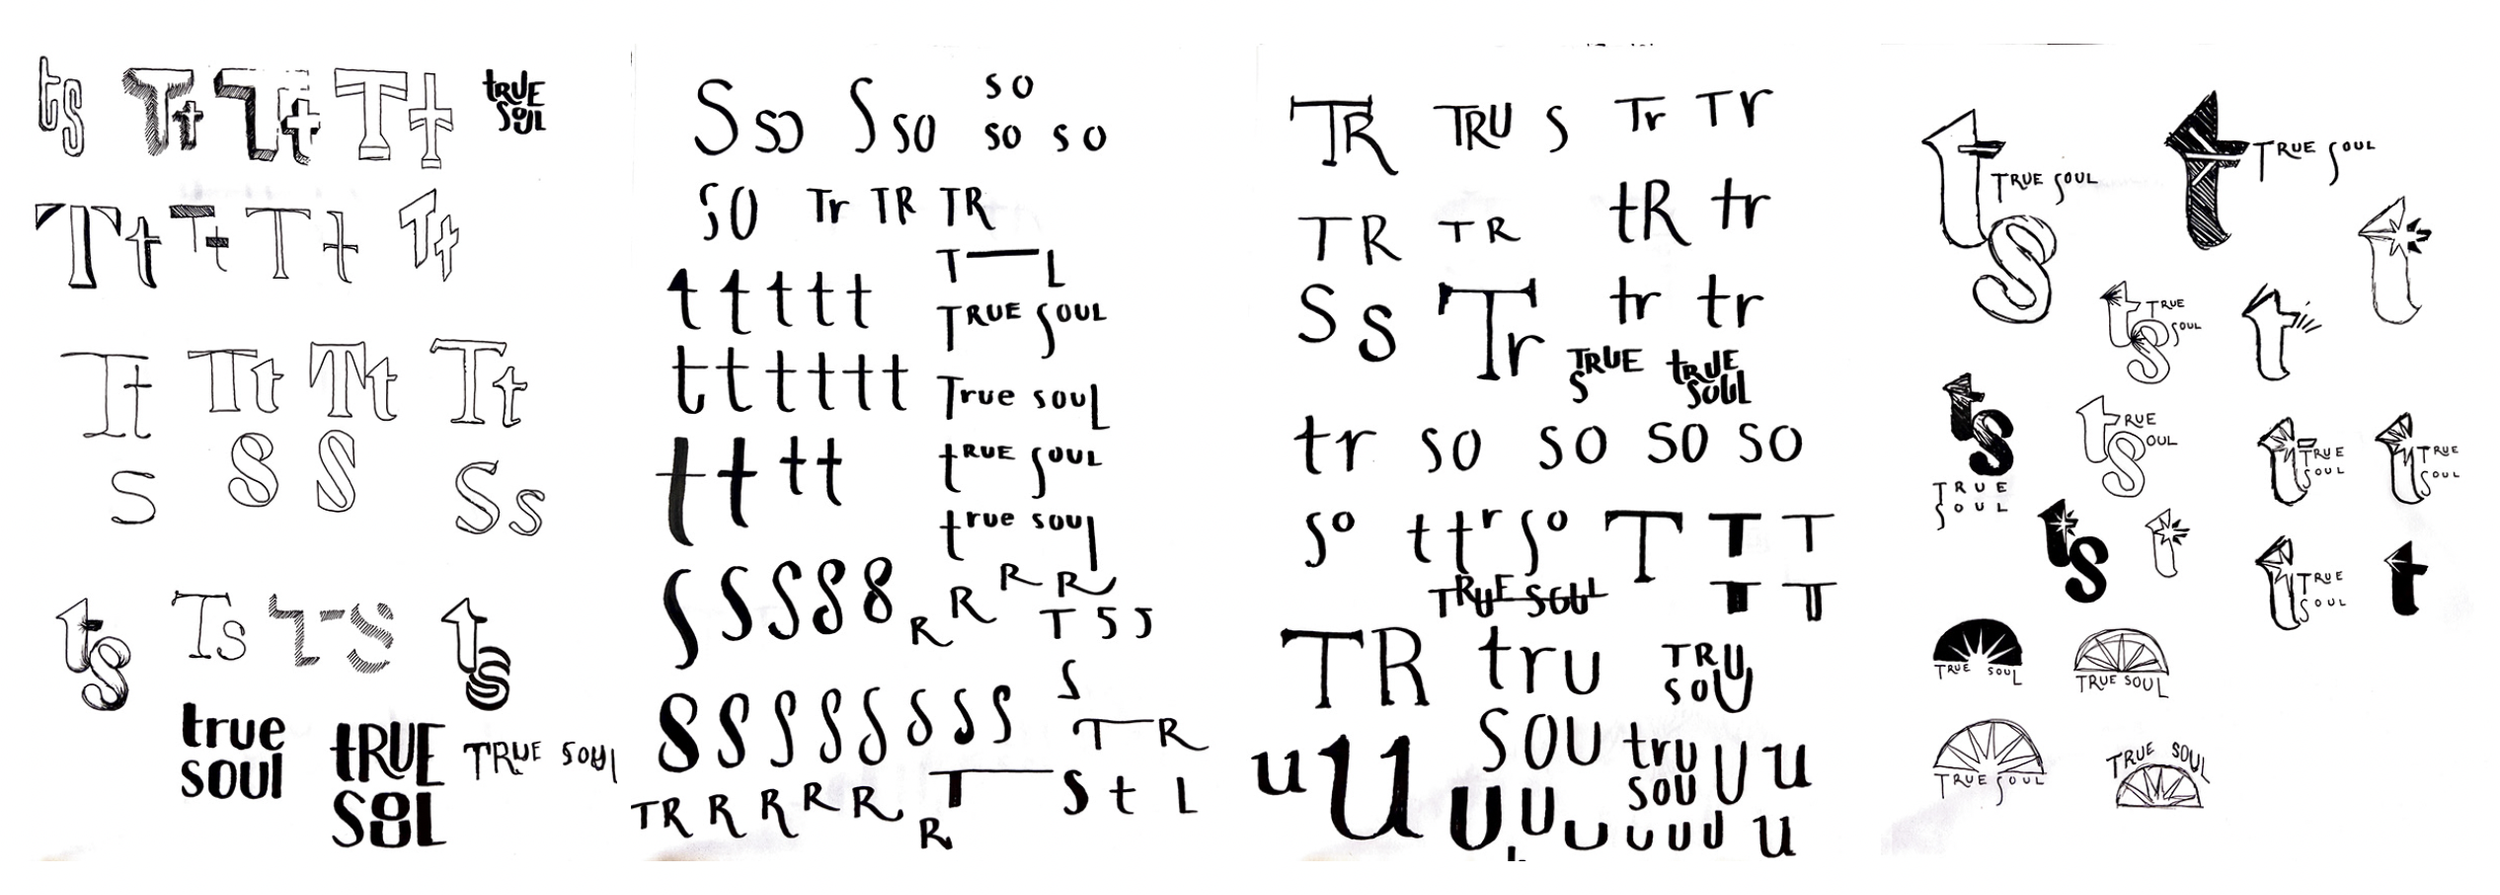 ts Tt Tt Tt TRUE SOUL
Tt Tt Tt Tt
Tt Tt Tt Tt
S S S Ss
ts Ts TS ts
true
soul
tRUE
SOUL
TRUE SOUL
S so S so so
so so
SO Tr TR TR
T L
t t t t t
TRUE SOUL
t t t t t t
True soul
t t t t
tRUE SOUL
true soul
S S S S 8
R R R R
T S S
S
S S S S S S S S
T R
TR R R R R
R
T
S t L
TR TRU S Tr Tr
TR TR tR tr
S S Tr tr tr
TRUE
S
trUE
SOUL
tr SO SO SO SO
So t tr So T T T
TRUE SOUL
T T
TR tru TRU
SOU
SOU
u U tru
SOU
U u
U U U U U U u
ts TRUE SOUL
t TRUE SOUL
t
ts TRUE
SOUL
t
ts
TRUE
SOUL
ts TRUE
SOUL
t TRUE
SOUL
t TRUE
SOUL
ts t
t TRUE
SOUL
t
TRUE SOUL
TRUE SOUL
TRUE SOUL
TRUE SOUL